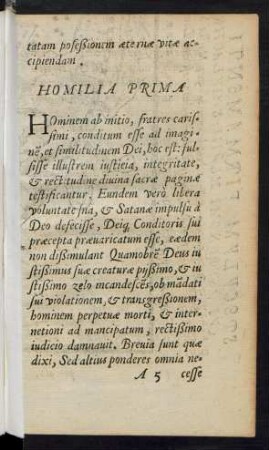 tatam poseßionem æternæ vitæ ac-
cipiendam.
HOMILIA PRIMA
HOminem ab initio, fratres caris-
simi, conditum esse ad imagi-
nẽ, et similitudinem Dei, hoc est: ful-
sisse illustrem iustieia, integritate,
& rectitudine diuina sacræ paginæ
testificantur. Eundem verò libera
voluntate sua, & Satanæ impulsu à
Deo defecisse, Deiq; Conditoris sui
præcepta præuaricatum esse, eædem
non dißimulant Quamobrẽ Deus iu
stißimus suæ creaturæ pyßimo, & iu
stißimo zelo incandescẽs, ob mãdati
sui violationem, & transgreßionem,
hominem perpetuæ morti, & inter-
netioni ad mancipatum, rectißimo
iudicio damnauit. Breuia sunt quæ
dixi, Sed altius ponderes omnia ne-
A 5 cesse